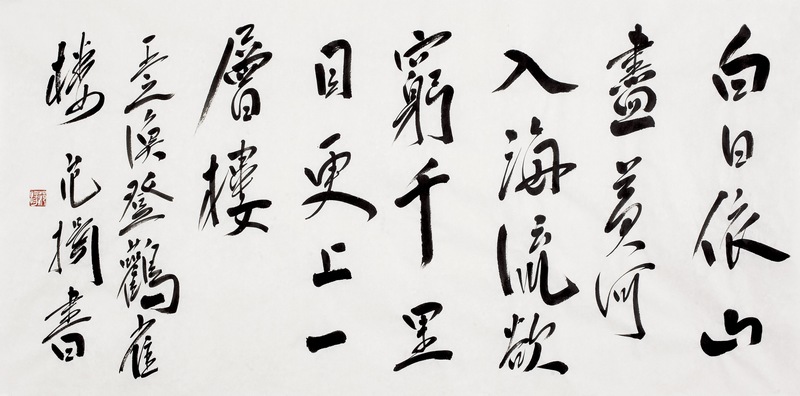 白日依山
盡黃河
入海流欲
窮千里
目更上一
層樓
王之渙登鸛雀
樓范揚書